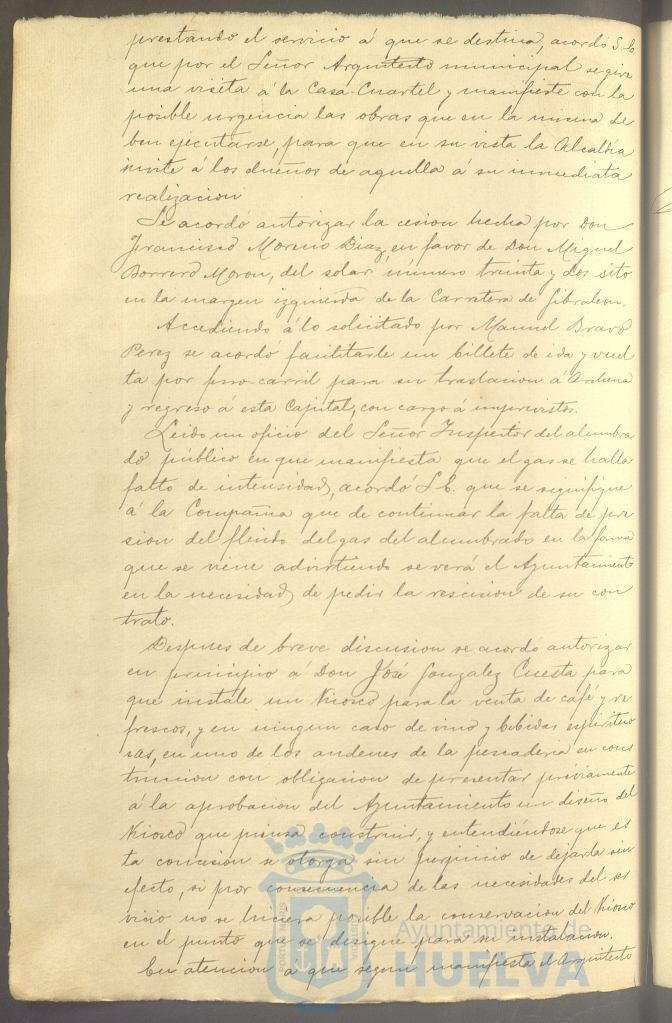 prestando el servicio á que se destina, acordó S. E.
que por el Señor Arquitecto municipal se gire
una visita á la Casa-Cuartel y manifieste con la
posible urgencia las obras que en la misma de
ben ejecutarse, para que en su vista la Alcaldia
invite á los dueños de aquella á su inmediata
realizacion
Se acordó autorizar la cesion hecha por Don
Francisco Moreno Diaz, en favor de Don Miguel
Borrero Moron, del solar número treinta y dos sito
en la margen izquierda de la Carretera de Gibraleon.
Accediendo á lo solicitado por Manuel Bravo
Perez se acordó facilitarle un billete de ida y vuel
ta por ferro-carril para su traslacion á Archena
y regreso á esta Capital, con cargo á imprevistos.
Leido un oficio del Señor Inspector del alumbra
do público en que manifiesta que el gas se halla
falto de intensidad, acordó S. E. que se signifique
á la Compañia que de continuar la falta de pre
sion del fluido del gas del alumbrado en la forma
que se viene advirtiendo se verá el Ayuntamiento
en la necesidad de pedir la rescision de su con
trato.
Despues de breve discusion se acordó autorizar
en principio á Don José Gonzalez Cuesta para
que instale un Kiosco para la venta de café y re
frescos, y en ningun caso de vino y bebidas espirituo
sas, en uno de los andenes de la pescaderia en cons
truccion con obligacion de presentar préviamente
á la aprobacion del Ayuntamiento un diseño del
Kiosco que piensa construir, y entendiéndose que es
ta concesion se otorga sin perjuicio de dejarla sin
efecto, si por consecuencia de las necesidades del ser
vicio no se hiciera posible la conservacion del Kiosco
en el punto que se designe para su instalacion.
En atencion á que segun manifiesta el Arquitecto
Ayuntamiento de
HUELVA